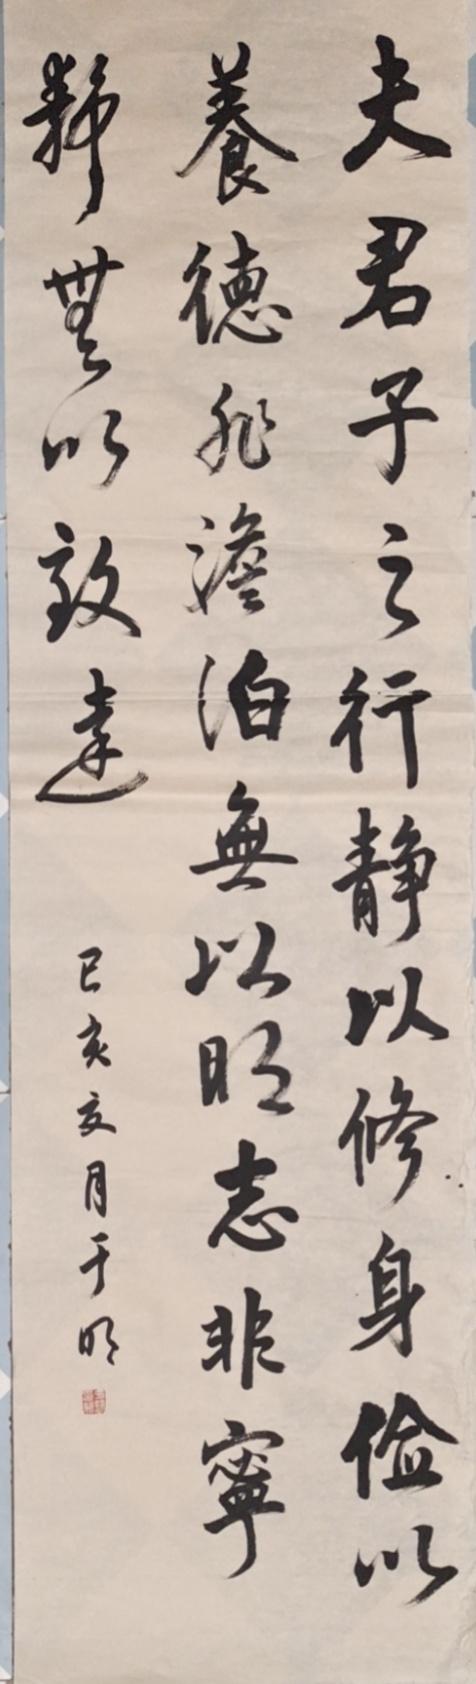 夫君子之行静以修身俭以
養德非澹泊無以明志非寧
静無以致達
己亥文月于明